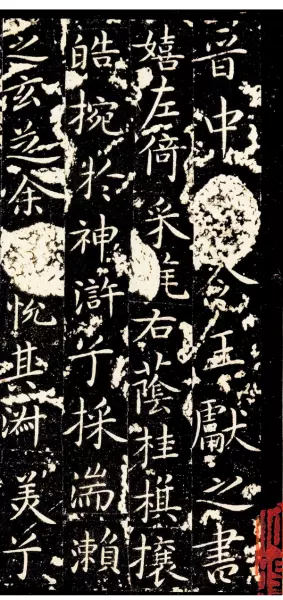 晋中令王獻之書
嬉左倚采旄右蔭桂棋攘
皓捥於神滸兮採湍瀨
之玄芝余悦其淑美兮